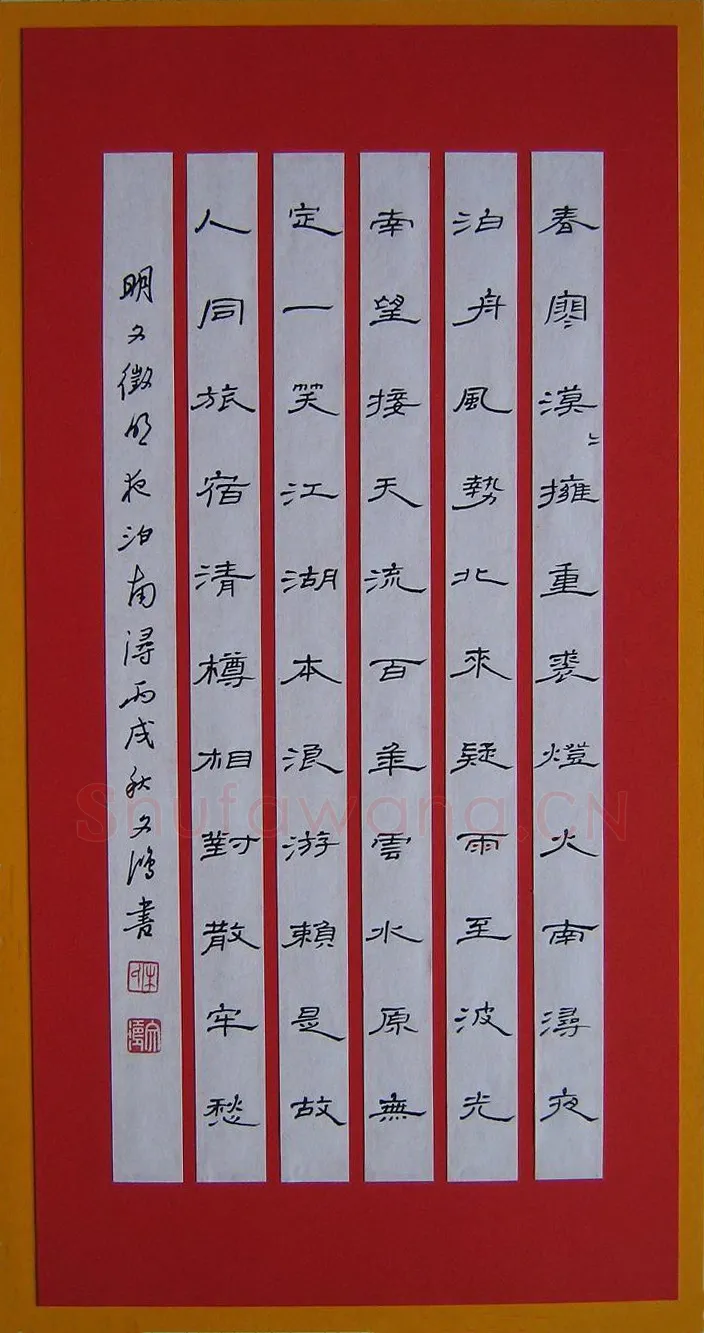 春寒漠〻擁重裘燈火南潯夜
泊舟風勢北來疑雨至波光
南望接天流百年雲水原無
定一笑江湖本浪游賴是故
人同旅宿清樽相對散牢愁
明文徵明夜泊南潯丙戌秋文鴻書
Shufawang.CN